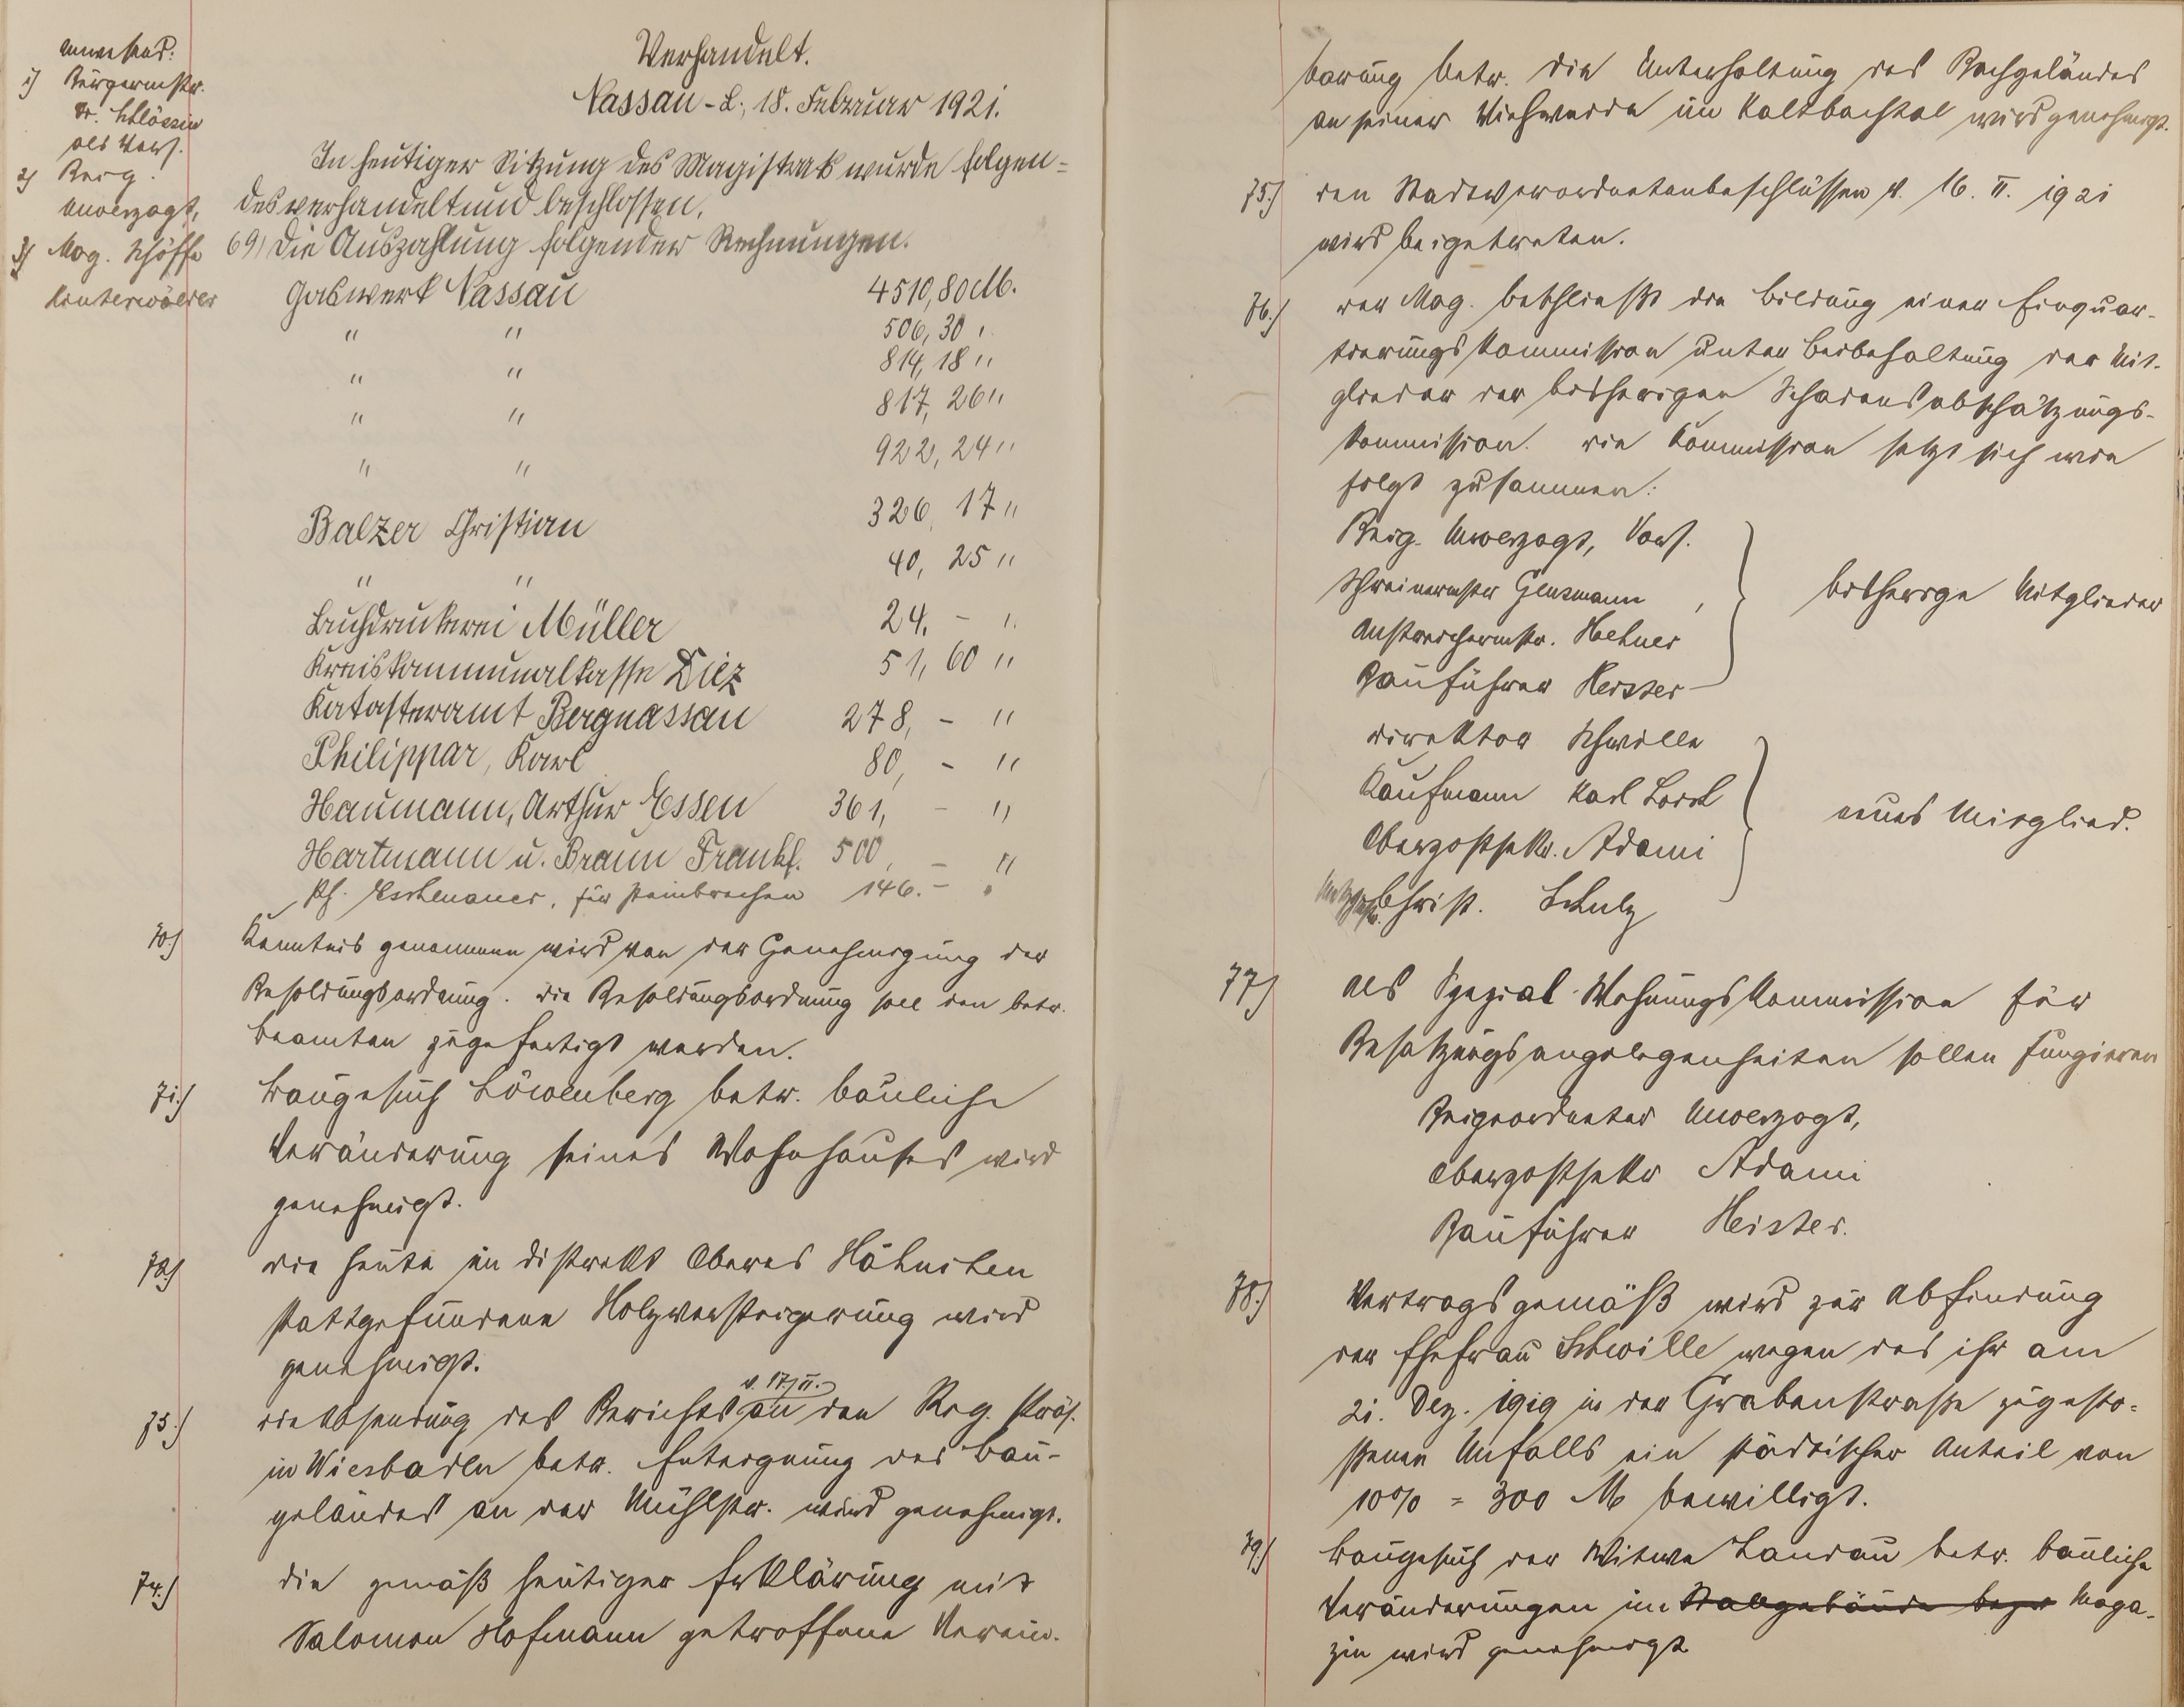 Anwesend:
1) Bürgermstr.
Dr. Schlössin
als Vors.
2) Beig.
Unverzagt,
3) Mag. Schöffe
Unterwälder
Verhandelt.
Nassau-L., 18. Februar 1921.
In heutiger Sitzung des Magistrats wurde folgen=
des verhandelt und beschlossen.
69) Die Auszahlung folgender Rechnungen.
Gaswerk Nassau 4510,80 M.
" " 506,30 "
" " 814,18 "
" " 817,26 "
" " 922,24 "
Balzer Christian 326,17 "
" " 40,25 "
Buchdruckerei Müller 24,- "
Kreiskommunalkasse Diez 51,60 "
Katasteramt Bergnassau 278,- "
Philippar, Karl 80,- "
Haumann, Arthur Essen 361,- "
Hartmann u. Braun Frankf. 500,- "
Ph. Eschenauer, für Steinbrechen 146.- "
70.) Kenntnis genommen wird von der Genehmigung der
Besoldungsordnung. Die Besoldungsordnung soll den betr.
Beamten zugefertigt werden.
71.) Baugesuch Löwenberg betr. bauliche
Veränderung seines Wohnhauses wird
genehmigt.
72.) Die heute im Distrikt Oberes Hähnchen
stattgefundene Holzversteigerung wird
genehmigt.
73.) Die Absendung des Berichts v. 17/II. an den Reg. Präs.
in Wiesbaden betr. Enteignung des Bau-
geländes an der Mühlstr. wird genehmigt.
74.) Die gemäß heutiger Erklärung mit
Salomon Hofmann getroffene Verein-
barung betr. die Unterhaltung des Bachgeländes
an seiner Viehweide im Kaltbachtal wird genehmigt.
75.) Den Stadtverordnetenbeschlüssen v. 16. II. 1921
wird beigetreten.
76.) Der Mag. beschließt die Bildung einer Einquar-
tierungskommission unter Beibehaltung der Mit-
glieder der bisherigen Schadensabschätzungs-
kommission. Die Kommission setzt sich wie
folgt zusammen:
Beig. Unverzagt, Vors.
Schreinermstr Glasmann,
Anstreichermstr. Hehner
Bauführer Heister
bisherige Mitglieder
Direktor Schwille
Kaufmann Karl Lorch
Oberpostsekr. Adami
Christ. Schulz
neues Mitglied.
77) Als Spezial-Wohnungskommission für
Besatzungsangelegenheiten sollen fungieren
Beigeordneter Unverzagt,
Oberpostsekr Adami
Bauführer Heister.
78.) Vertragsgemäß wird zur Abfindung
der Ehefrau Schwille wegen des ihr am
21. Dez. 1919 in der Grabenstraße zugesto=
ßenen Unfalls ein städtischer Anteil von
10% = 300 M bewilligt.
79.) Baugesuch der Witwe Landau betr. bauliche
Veränderungen im Stallgebäude bezw Maga-
zin wird genehmigt